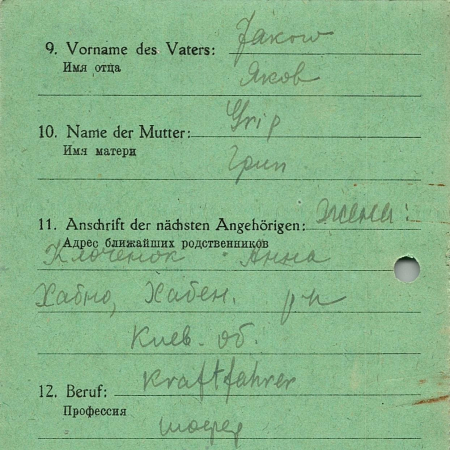 9. Vorname des Vaters: Jakow
Имя отца
Яков
10. Name der Mutter: Grip
Имя матери
Грип
11. Anschrift der nächsten Angehörigen: жена:
Адрес ближайших родственников
Клоченок Анна
Хабно, Хабен. р-н
Киев. об.
12. Beruf: Kraftfahrer
Профессия
шофер